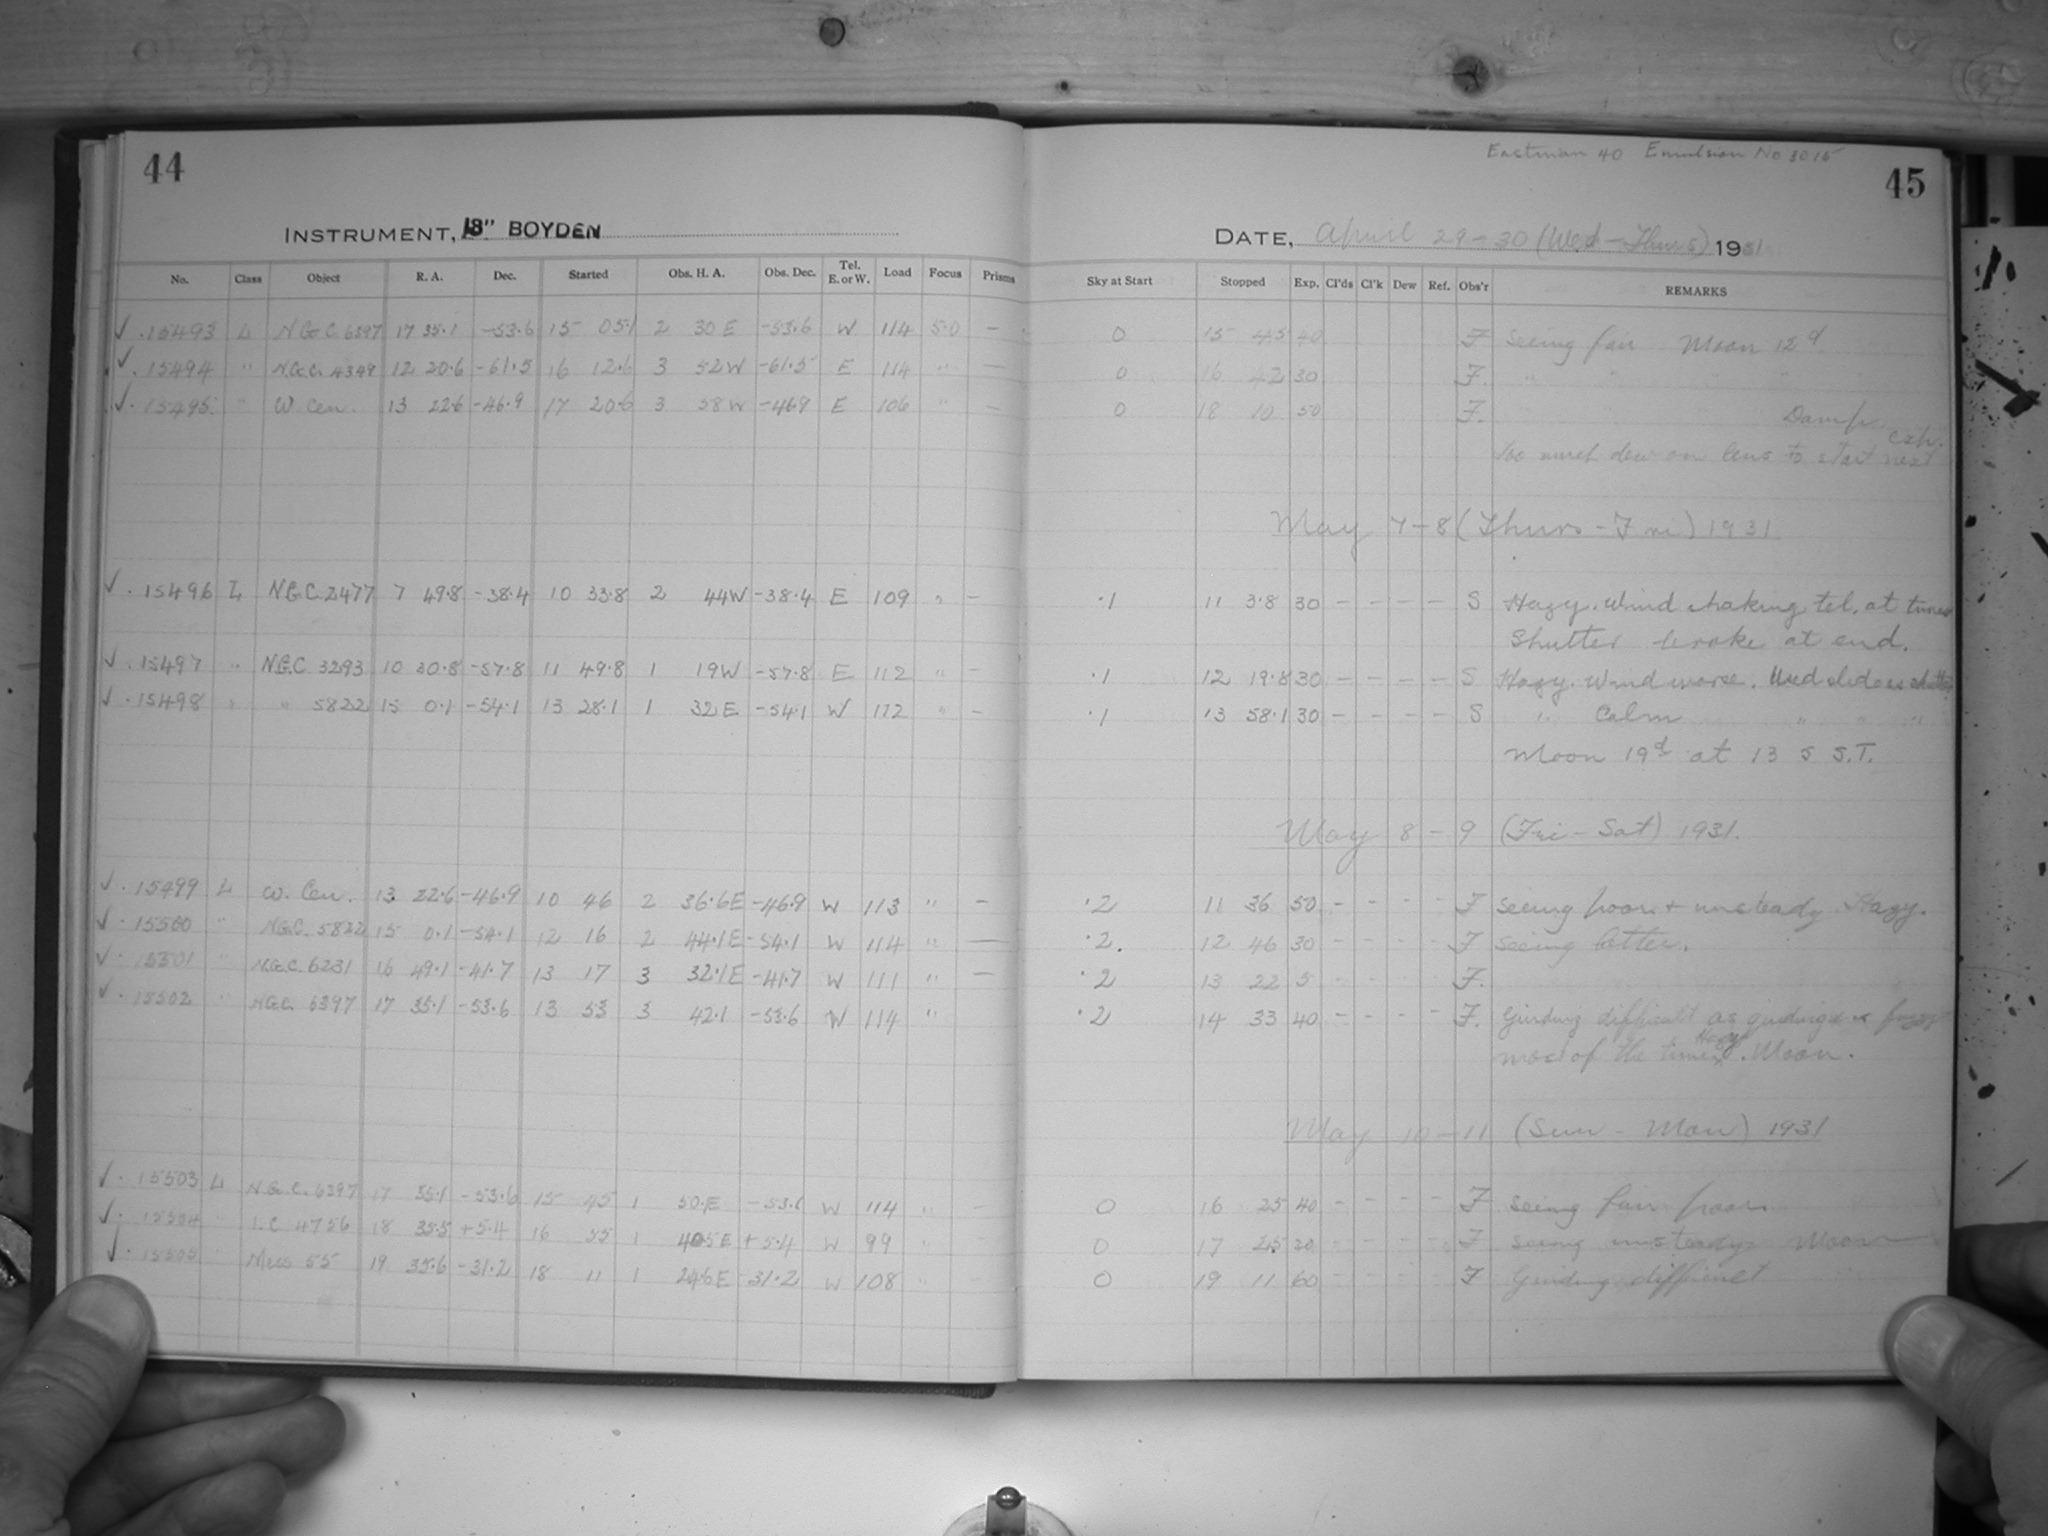 44
INSTRUMENT, 18" BOYDEN
No. Class Object R. A. Dec. Started Obs. H. A. Obs. Dec. Tel. E. or W. Load Focus Prisms
✓ . 15493 L N.G.C. 6397 17 35.1 -53.6 15 05.1 2 30 E -53.6 W 114 5.0 —
✓ . 15494 " N.G.C. 4349 12 20.6 -61.5 16 12.6 3 52 W -61.5 E 114 " —
✓ . 15495 " W Cen. 13 22.6 -46.9 17 20.6 3 58 W -46.9 E 106 " —
✓ . 15496 L N.G.C. 2477 7 49.8 -38.4 10 33.8 2 44 W -38.4 E 109 " —
✓ . 15497 " N.G.C. 3293 10 30.8 -57.8 11 49.8 1 19 W -57.8 E 112 " —
✓ . 15498 " " 5822 15 0.1 -54.1 13 28.1 1 32 E -54.1 W 112 " —
✓ . 15499 L W. Cen. 13 22.6 -46.9 10 46 2 36.6 E -46.9 W 113 " —
✓ . 15500 " N.G.C. 5822 15 0.1 -54.1 12 16 2 44.1 E -54.1 W 114 " —
✓ . 15501 " N.G.C. 6231 16 49.1 -41.7 13 17 3 32.1 E -41.7 W 111 " —
✓ . 15502 " N.G.C. 6397 17 35.1 -53.6 13 53 3 42.1 -53.6 W 114 "
✓ . 15503 L N.G.C. 6397 17 35.1 -53.6 15 45 1 50 E -53.6 W 114 "
✓ . 15504 " I.C. 4756 18 35.5 +5.4 16 55 1 40.5 E +5.4 W 99 "
✓ . 15505 " Mess 55 19 35.6 -31.2 18 11 1 24.6 E -31.2 W 108 "
Eastman 40 Emulsion No 3015
45
DATE, April 29-30 (Wed - Thurs) 1931
Sky at Start Stopped Exp. Cl'ds Cl'k Dew Ref. Obs'r REMARKS
0 15 45 40 F Seeing fair Moon 12d
0 16 42 30 F. " " "
0 18 10 50 F. Damp
Too much dew on lens to start next exp.
May 7-8 (Thurs - Fri) 1931
.1 11 3.8 30 — — — — S Hazy. Wind shaking tel. at times
Shutter broke at end.
.1 12 19.8 30 — — — — S Hazy. Wind worse. Used slide as shutter
.1 13 58.1 30 — — — — S " Calm " " "
Moon 19d at 13 S S.T.
May 8 - 9 (Fri - Sat) 1931.
.2 11 36 50 — — — — F Seeing poor + unsteady. Hazy.
.2. 12 46 30 — — — — F Seeing better.
.2 13 22 5 — — — — F.
.2 14 33 40 — — — — F. Guiding difficult as guiding
most of the time. Hazy. Moon.
May 10 - 11 (Sun - Mon) 1931
0 16 25 40 — — — — F Seeing fair poor
0 17 25 30 — — — — F Seeing unsteady Moon
0 19 11 60 — — — — F Guiding difficult